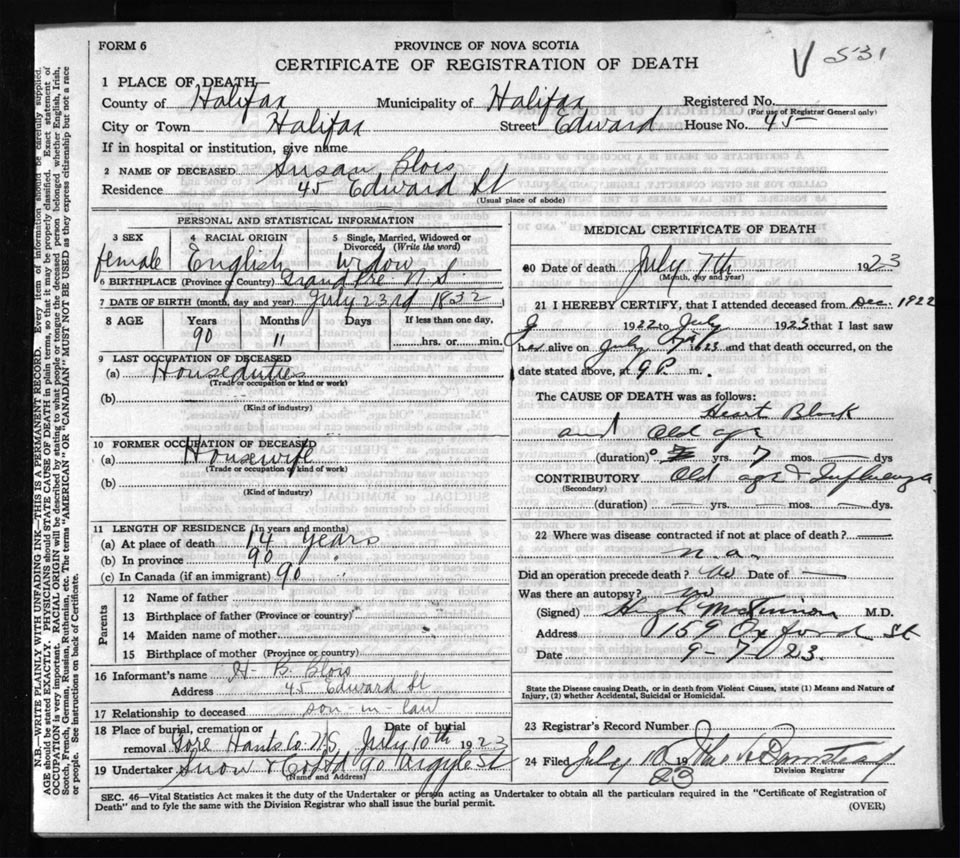 FORM 6
PROVINCE OF NOVA SCOTIA
CERTIFICATE OF REGISTRATION OF DEATH
V 531
1 PLACE OF DEATH—
County of Halifax Municipality of Halifax Registered No.
(For use of Registrar General only)
City or Town Halifax Street Edward House No. 45
If in hospital or institution, give name
2 NAME OF DECEASED Susan Blois
Residence 45 Edward St
(Usual place of abode)
PERSONAL AND STATISTICAL INFORMATION
3 SEX 4 RACIAL ORIGIN 5 Single, Married, Widowed or Divorced, (Write the word)
female English Widow
6 BIRTHPLACE (Province or Country) Grand Pre N S
7 DATE OF BIRTH (month, day and year) July 23rd 1832
8 AGE Years Months Days If less than one day,
90 11 hrs. or min.
9 LAST OCCUPATION OF DECEASED
(a) Houseduties
(Trade or occupation or kind or work)
(b)
(Kind of industry)
10 FORMER OCCUPATION OF DECEASED
(a) Housewife
(Trade or occupation or kind or work)
(b)
(Kind of industry)
11 LENGTH OF RESIDENCE (In years and months)
(a) At place of death 14 years
(b) In province 90 "
(c) In Canada (if an immigrant) 90 "
Parents
12 Name of father
13 Birthplace of father (Province or country)
14 Maiden name of mother
15 Birthplace of mother (Province or country)
16 Informant's name H. B. Blois
Address 45 Edward St
17 Relationship to deceased son-in-law
18 Place of burial, cremation or removal Date of burial
Gore Hants Co. N.S. July 10th 1923
19 Undertaker Snow & Co Ltd 90 Argyle St
(Name and Address)
MEDICAL CERTIFICATE OF DEATH
20 Date of death July 7th 1923
(Month, day and year)
21 I HEREBY CERTIFY, that I attended deceased from Dec. 1922
1922 to July 1923 that I last saw
her alive on July 1923 and that death occurred, on the
date stated above, at 9 P. m.
The CAUSE OF DEATH was as follows:
Heart Block
and Old age
(duration) yrs. 7 mos. dys
CONTRIBUTORY Old age & Influenza
(Secondary)
(duration) yrs. mos. dys.
22 Where was disease contracted if not at place of death?
n.a.
Did an operation precede death? No Date of —
Was there an autopsy? No
(Signed) Hugh M.D.
Address 159 Oxford St
Date 9-7-23.
State the Disease causing Death, or in death from Violent Causes, state (1) Means and Nature of
Injury, (2) whether Accidental, Suicidal or Homicidal.
23 Registrar's Record Number
24 Filed July 10 1923
Division Registrar
SEC. 46—Vital Statistics Act makes it the duty of the Undertaker or person acting as Undertaker to obtain all the particulars required in the "Certificate of Registration of
Death" and to fyle the same with the Division Registrar who shall issue the burial permit.
(OVER)
N.B.—WRITE PLAINLY WITH UNFADING INK—THIS IS A PERMANENT RECORD. Every item of information should be carefully supplied.
AGE should be stated EXACTLY. PHYSICIANS should STATE CAUSE OF DEATH in plain terms, so that it may be properly classified. Exact statement of
OCCUPATION is very important. RACIAL ORIGIN will be described by stating to what people or tongue the deceased person belonged whether English, Irish,
Scotch, French, German, Russian, Ruthenian, etc. The terms "AMERICAN" OR "CANADIAN" MUST NOT BE USED as they express citizenship but not a race
or people. See instructions on back of Certificate.